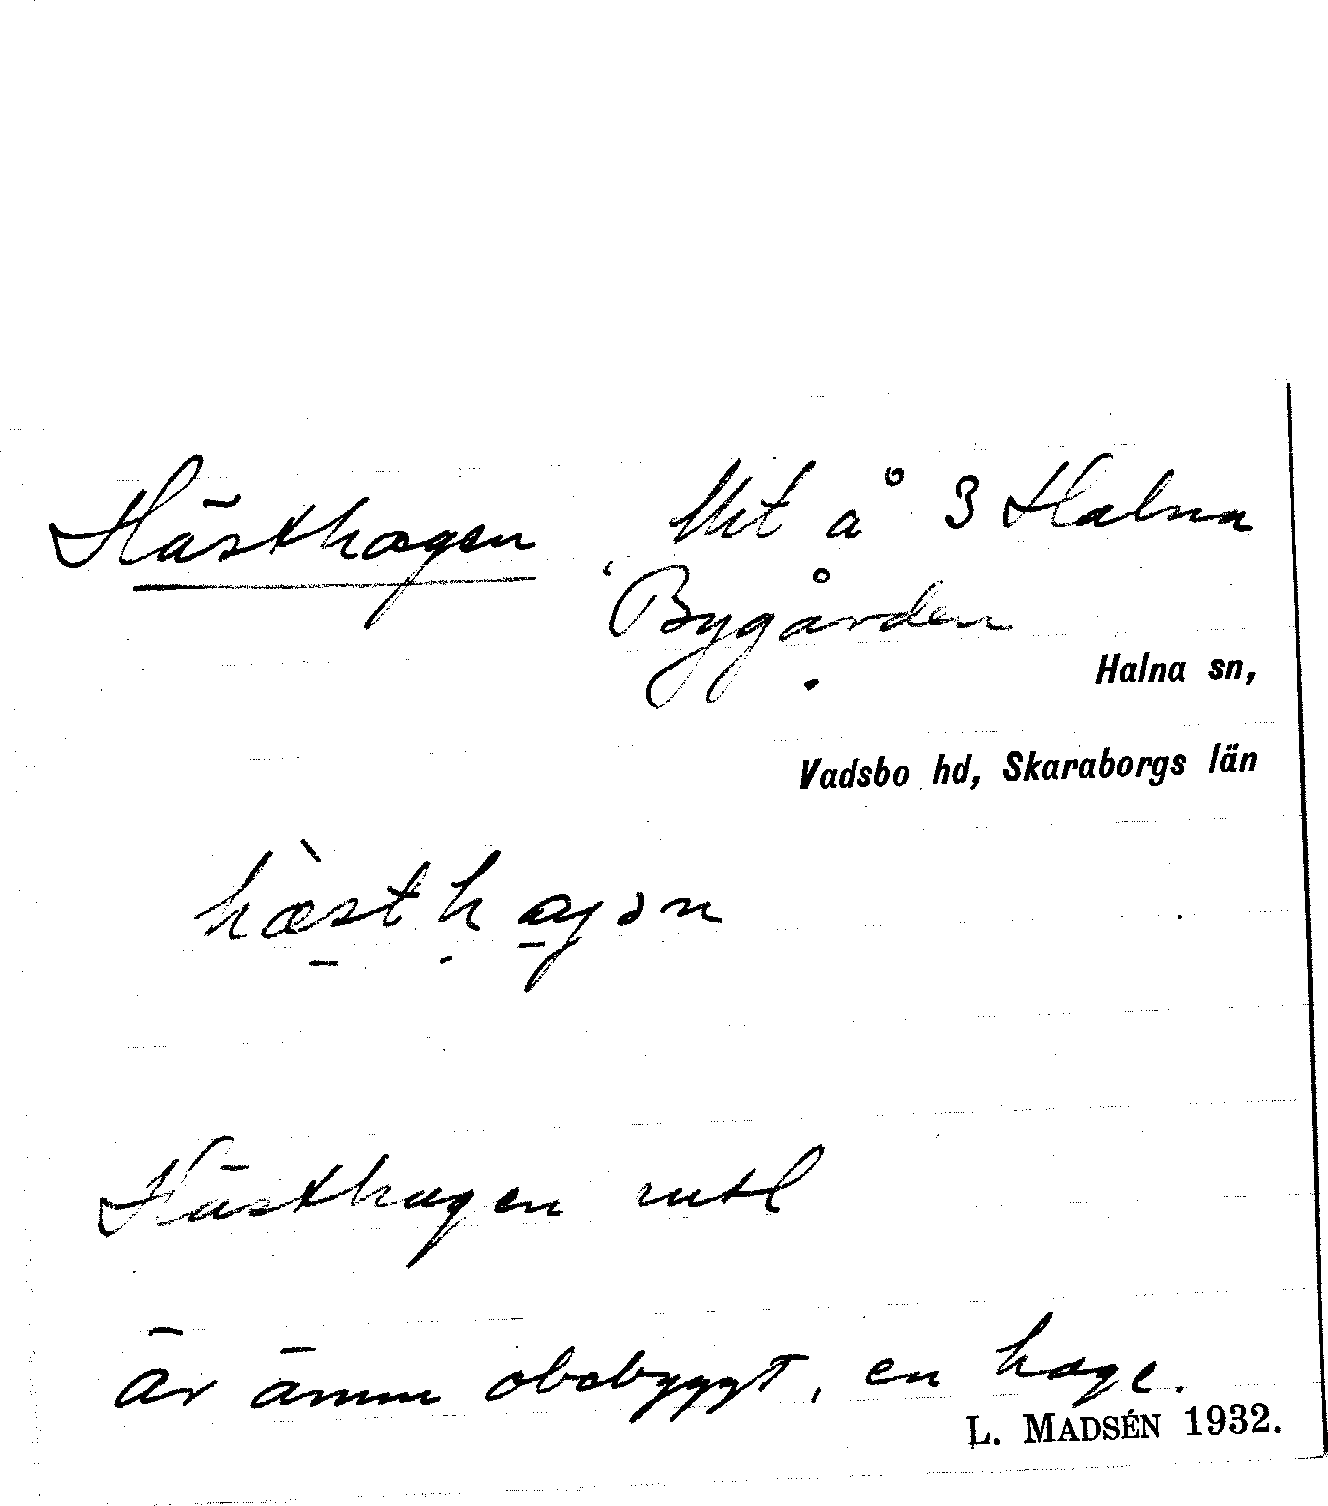 Hästhagen Utt å 3 Halna
Bygården
Halna sn,
Vadsbo hd, Skaraborgs län
hæsthagən
Hästhagen
är ännu obebyggt, en hage.
L. MADSÉN 1932.